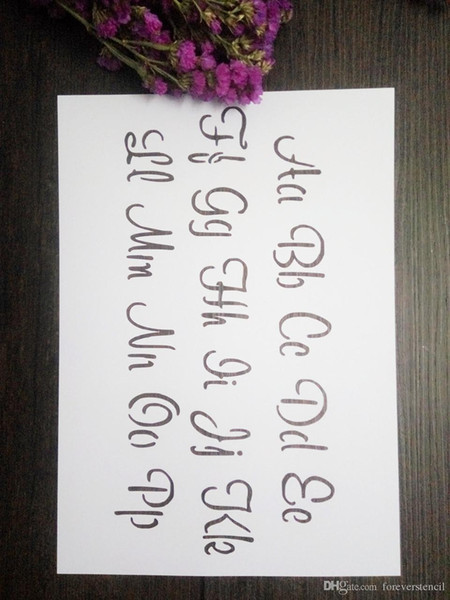 Aa Bb Cc Dd Ee
Ff Gg Hh Ii Jj Kk
Ll Mm Nn Oo Pp
DHgate.com foreverstencil